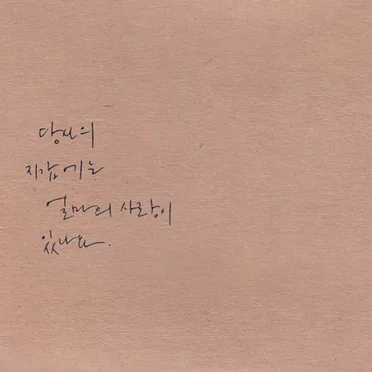 당신의
지갑에는
얼마의 사랑이
있나요.